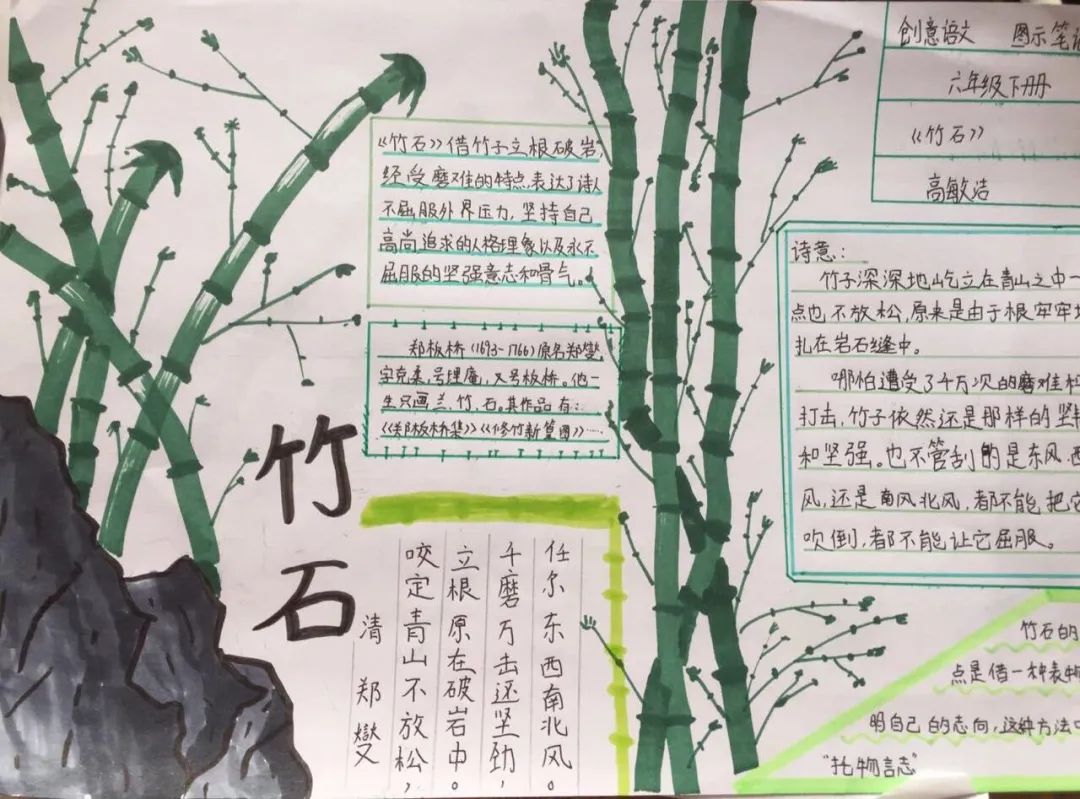 创意语文 图示笔
六年级下册
《竹石》
高敏洁
《竹石》借竹子立根破岩,
经受磨难的特点,表达了诗人
不屈服外界压力,坚持自己
高尚追求的人格理象以及永不
屈服的坚强意志和骨气。
郑板桥(1693-1766)原名郑燮,
字克柔,号理庵,又号板桥。他一
生只画兰、竹、石。其作品有:
《郑板桥集》《修竹新篁图》……
竹石
清 郑燮
咬定青山不放松,
立根原在破岩中。
千磨万击还坚劲,
任尔东西南北风。
诗意:
竹子深深地屹立在青山之中一
点也不放松,原来是由于根牢牢地
扎在岩石缝中。
哪怕遭受了千万次的磨难和
打击,竹子依然还是那样的坚韧
和坚强。也不管刮的是东风西
风,还是南风北风,都不能把它
吹倒,都不能让它屈服。
竹石的
点是借一种表
明自己的志向,这种方法
"托物言志"